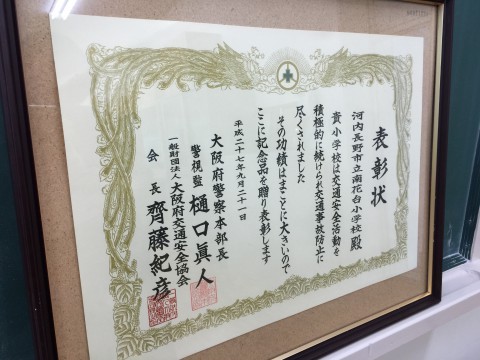 表彰状
河内長野市立南花台小学校 殿
貴小学校は交通安全活動を
積極的に続けられ交通事故防止に
尽くされました
その功績はまことに大きいので
ここに記念品を贈り表彰します
平成二十七年九月二十一日
大阪府警察本部長
警視監 樋口眞人
一般財団法人 大阪府交通安全協会
会長 齊藤紀彦